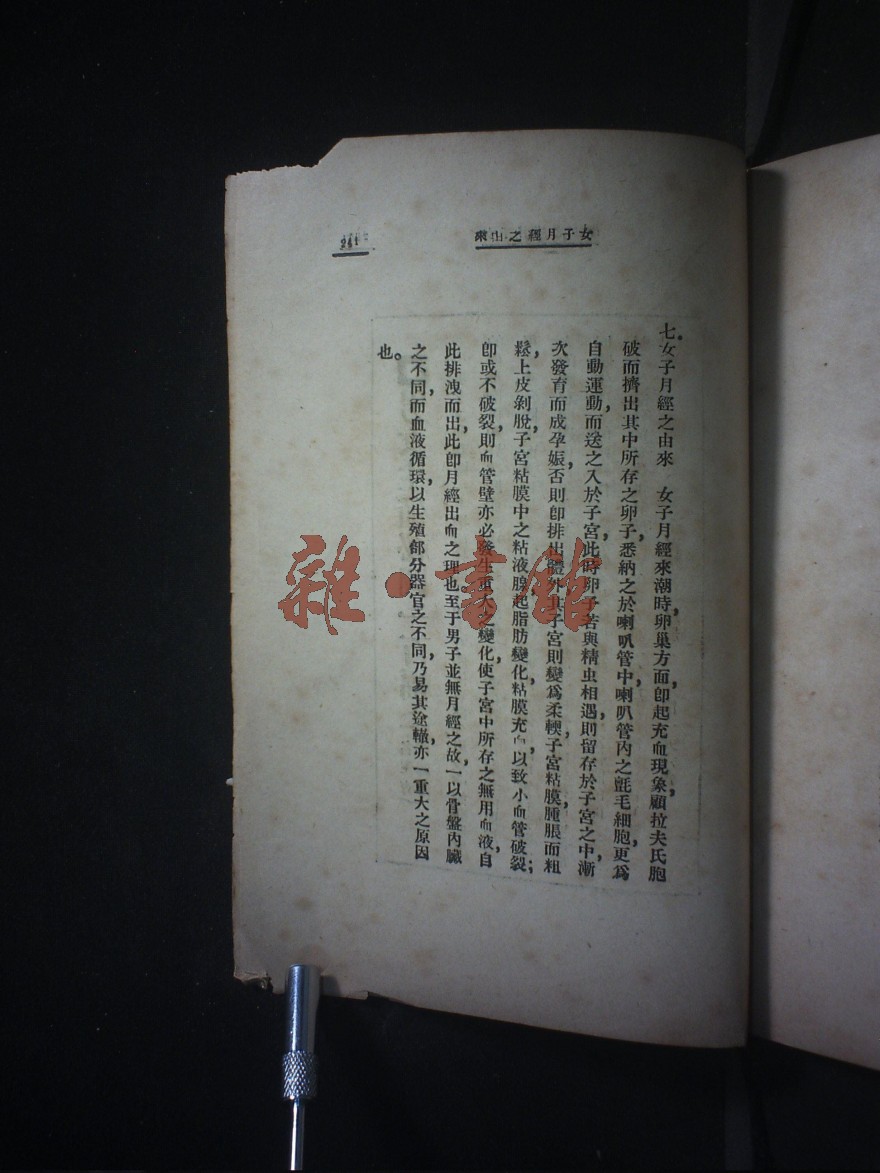 女子月經之由來
241
七、女子月經之由來　女子月經來潮時，卵巢方面，卽起充血現象，顧拉夫氏胞
破而擠出其中所存之卵子，悉納之於喇叭管中，喇叭管內之氈毛細胞，更爲
自動運動，而送之入於子宮，此時卵子若與精虫相遇，則留存於子宮之中，漸
次發育而成孕娠，否則卽排出體外，其子宮則變爲柔輭，子宮粘膜腫脹而粗
鬆，上皮剝脫，子宮粘膜中之粘液腺，起脂肪變化，粘膜充血，以致小血管破裂；
卽或不破裂，則血管壁亦必發生重大之變化，使子宮中所存之無用血液，自
此排洩而出，此卽月經出血之理也至于男子並無月經之故，一以骨盤內臟
之不同，而血液循環，以生殖部分器官之不同，乃易其途轍，亦一重大之原因
也。
雜·書館